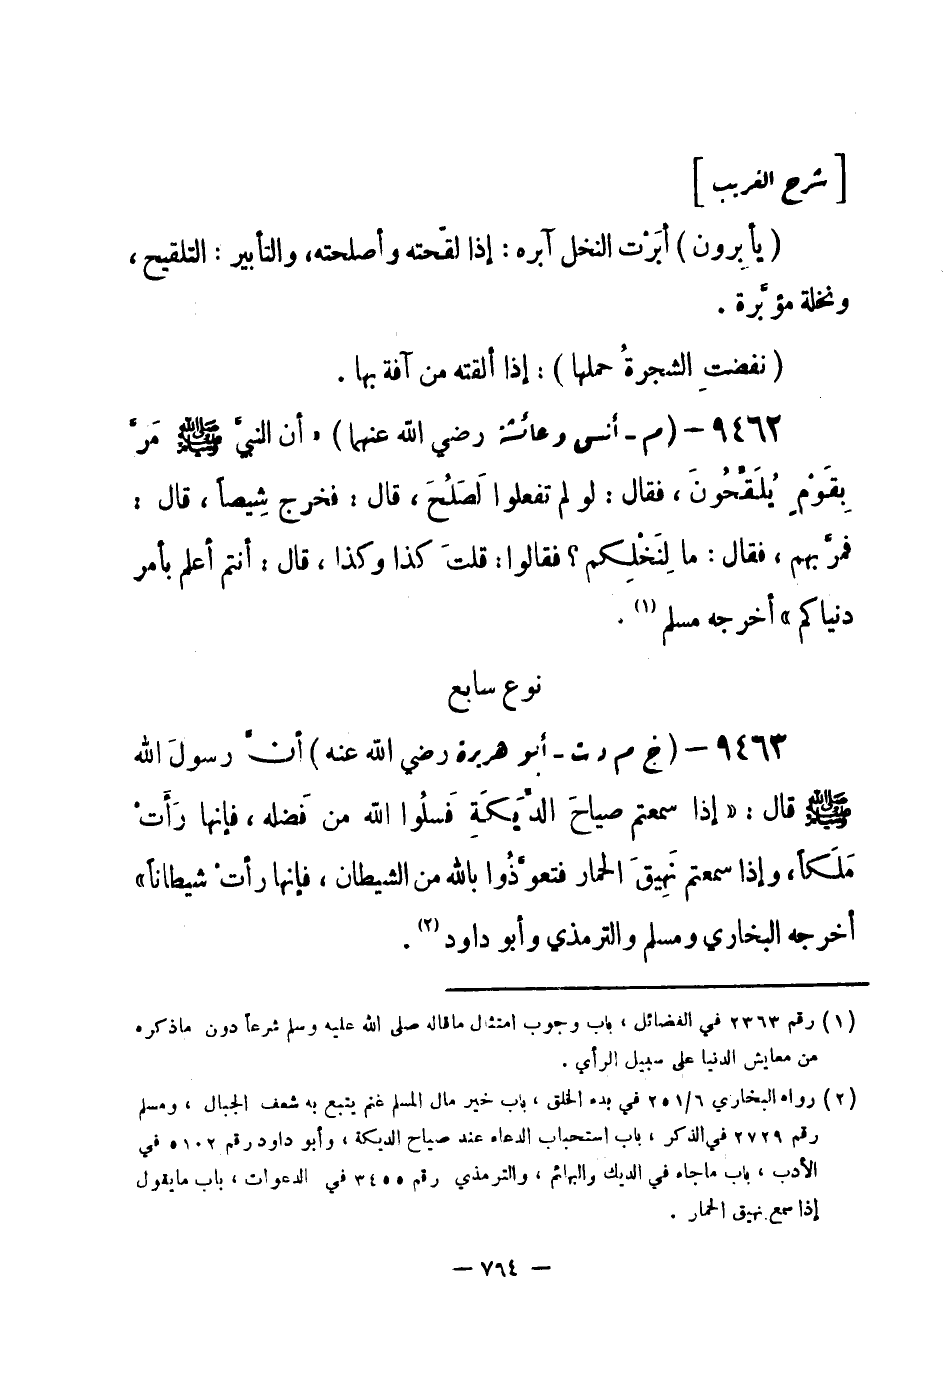 [ شرح الغريب ]
( يأبِرون ) أبَرْت النخل آبره : إذا لقّحته وأصلحته، والتأبير : التلقيح ،
ونخلة مؤبَّرة .
( نفضتِ الشجرةُ حملها ) : إذا ألقته من آفة بها .
٩٤٦٢ – (م - أنس وعائشة رضي الله عنهما) « أن النبيَّ ﷺ مَرَّ
بِقَوْمٍ يُلَقِّحُونَ ، فقال : لو لم تفعلوا لَصَلُحَ ، قال : فخرج شِيصاً ، قال :
فمرَّ بهم ، فقال : ما لِنَخْلِكم ؟ فقالوا : قلتَ كذا وكذا ، قال : أنتم أعلم بأمر
دنياكم » أخرجه مسلم (١) .
نوع سابع
٩٤٦٣ – (خ م د ت - أبو هريرة رضي الله عنه) أنَّ رسولَ الله
ﷺ قال : « إذا سمعتم صياحَ الدِّيَكَةِ فَسلُوا الله من فَضله ، فإنها رَأَتْ
مَلَكاً ، وإذا سمعتم نَهِيقَ الحمار فتعوَّذُوا بالله من الشيطان ، فإنها رأتْ شيطاناً »
أخرجه البخاري ومسلم والترمذي وأبو داود (٢) .
(١) رقم ٢٣٦٣ في الفضائل ، باب وجوب امتثال ماقاله صلى الله عليه وسلم شرعاً دون ماذكره
من معايش الدنيا على سبيل الرأي .
(٢) رواه البخاري ٢٥١/٦ في بدء الخلق ، باب خير مال المسلم غنم يتبع به شعف الجبال ، ومسلم
رقم ٢٧٢٩ في الذكر ، باب استحباب الدعاء عند صياح الديكة ، وأبو داود رقم ٥١٠٢ في
الأدب ، باب ماجاء في الديك والبهائم ، والترمذي رقم ٣٤٥٥ في الدعوات ، باب مايقول
إذا سمع نهيق الحمار .
– ٧٦٤ –